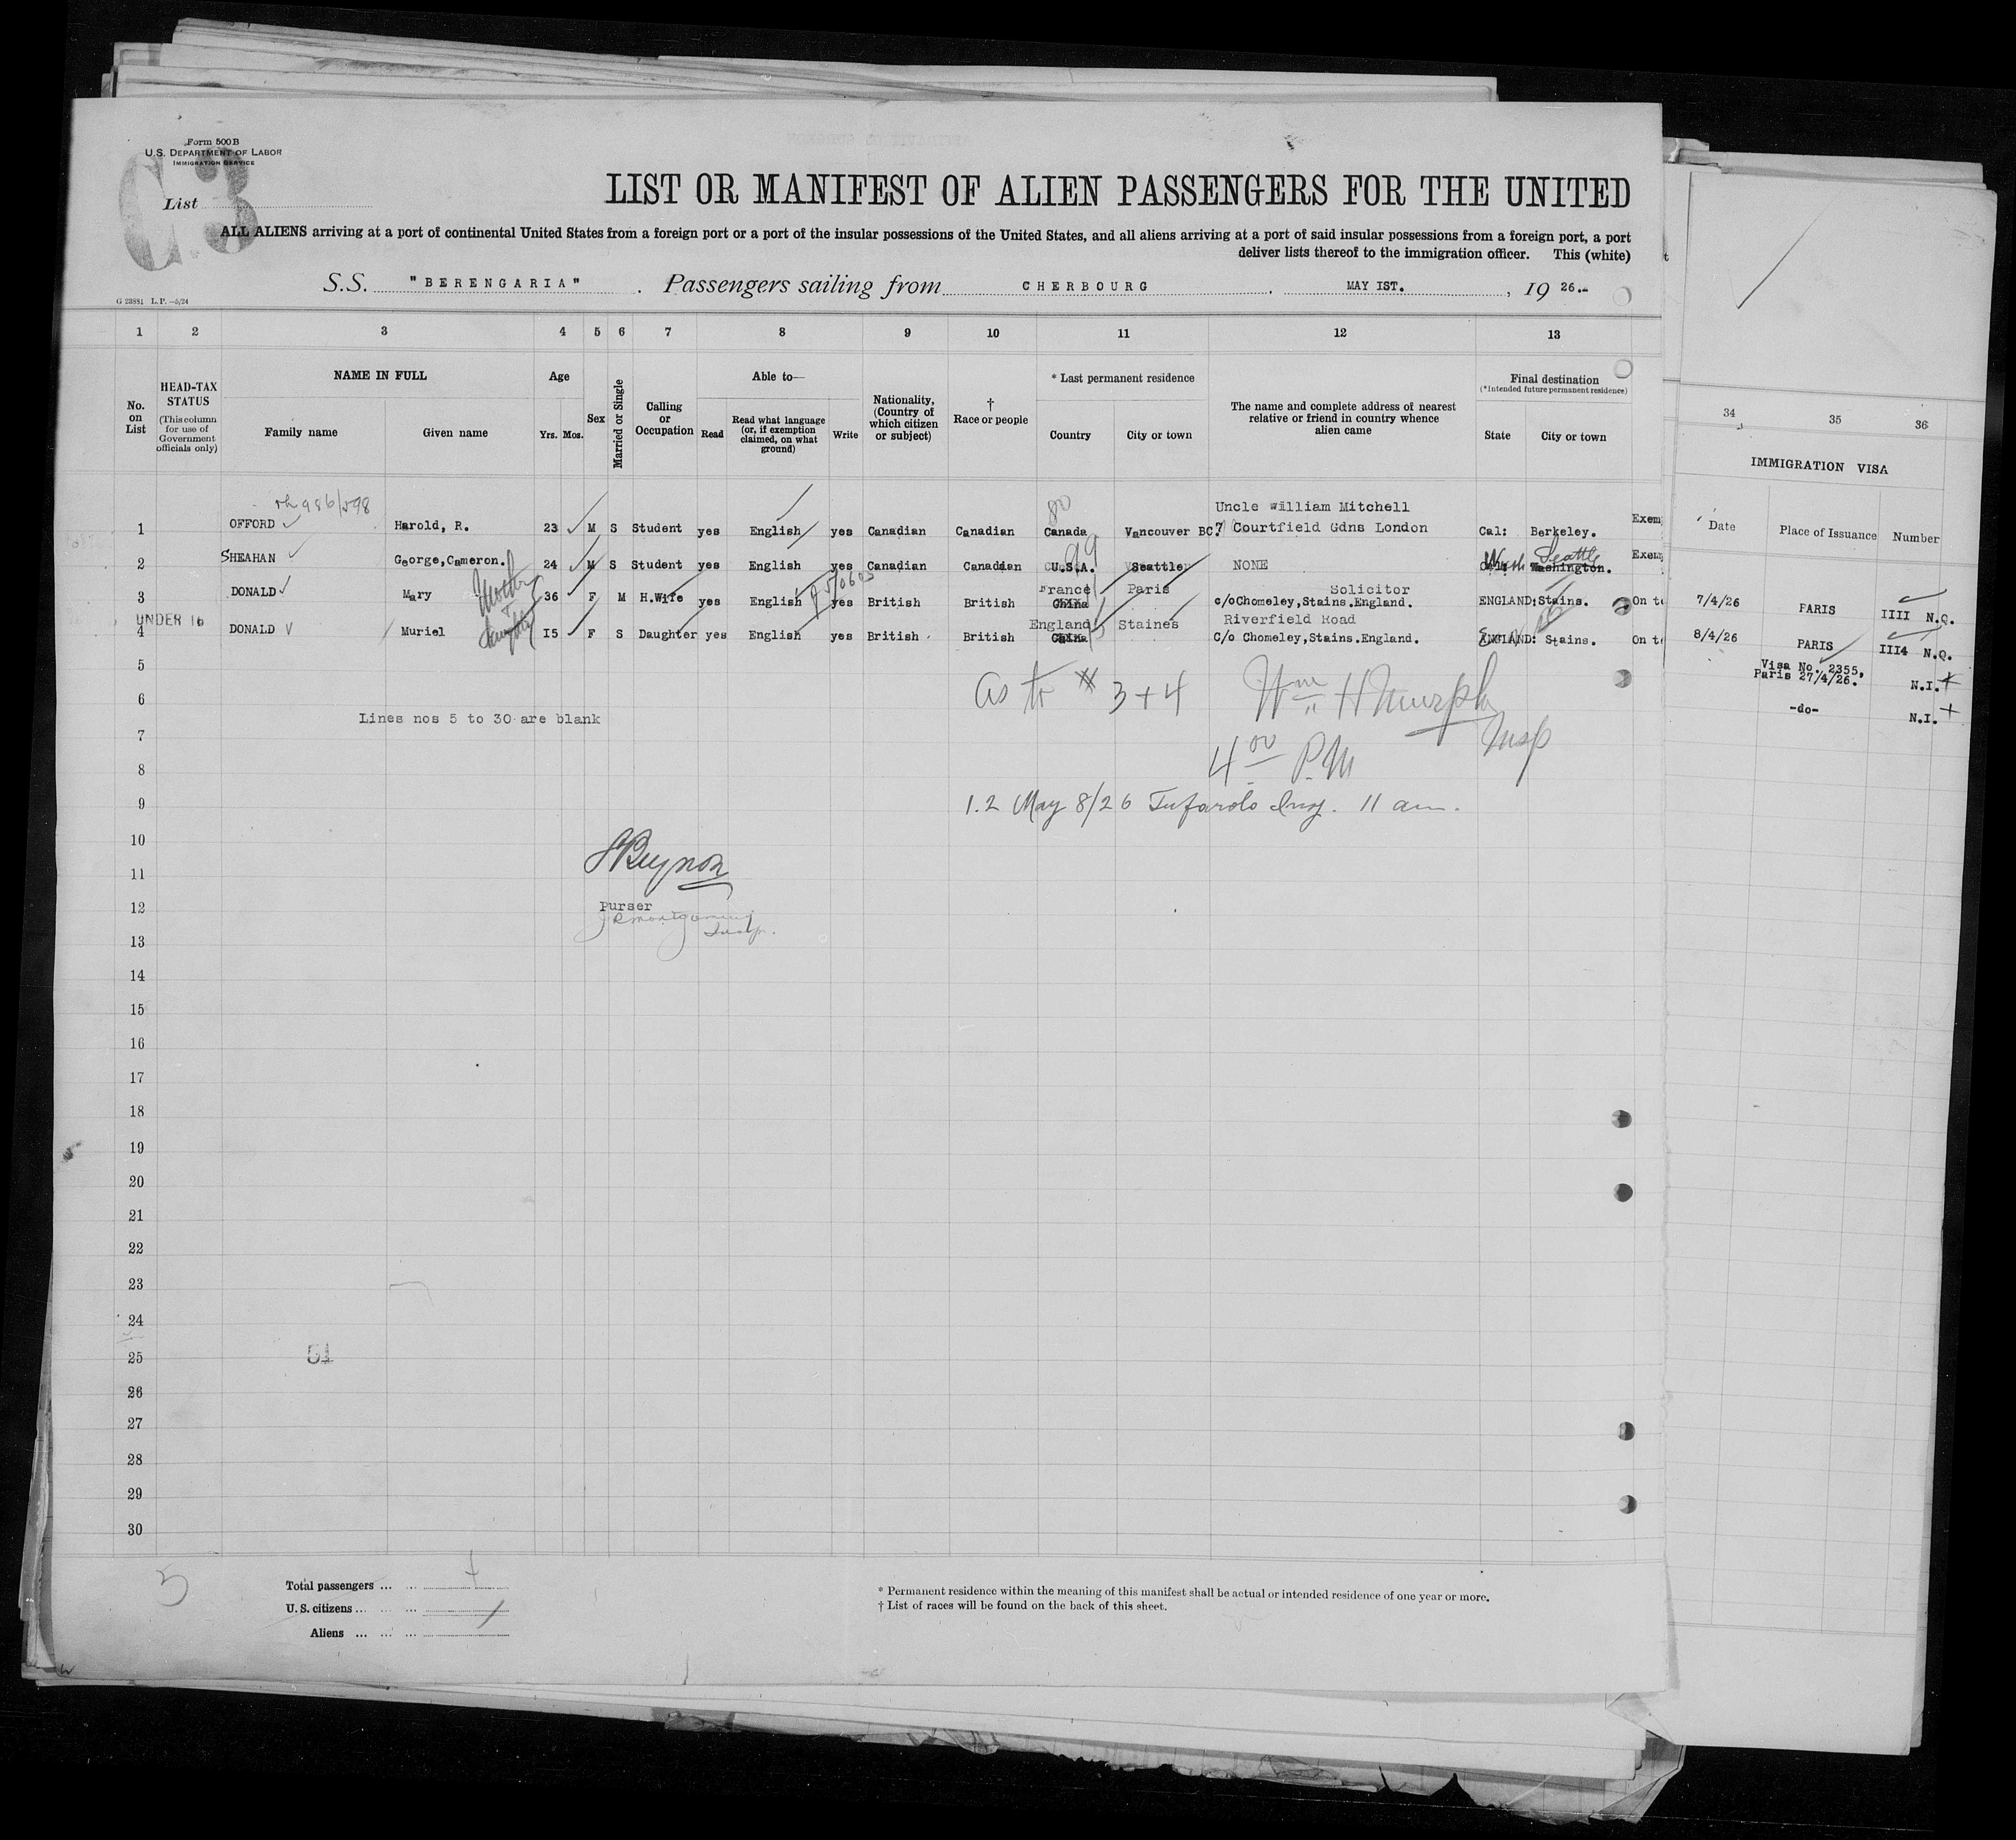 Form 500B
U.S. DEPARTMENT OF LABOR
IMMIGRATION SERVICE
C.3
List
LIST OR MANIFEST OF ALIEN PASSENGERS FOR THE UNITED
ALL ALIENS arriving at a port of continental United States from a foreign port or a port of the insular possessions of the United States, and all aliens arriving at a port of said insular possessions from a foreign port, a port
deliver lists thereof to the immigration officer. This (white)
S.S. "BERENGARIA". Passengers sailing from CHERBOURG. MAY IST., 19 26.-
G 23881 L.P. —5/24
1 2 3 4 5 6 7 8 9 10 11 12 13
34 35 36
No. on List
HEAD-TAX STATUS
(This column for use of Government officials only)
NAME IN FULL
Family name Given name
Age
Yrs. Mos.
Sex
Married or Single
Calling or Occupation
Able to—
Read
Read what language (or, if exemption claimed, on what ground)
Write
Nationality, (Country of which citizen or subject)
† Race or people
* Last permanent residence
Country City or town
The name and complete address of nearest relative or friend in country whence alien came
Final destination
(*Intended future permanent residence)
State City or town
IMMIGRATION VISA
Date Place of Issuance Number
986/598
80
Uncle William Mitchell
1 OFFORD Harold, R. 23 M S Student yes English yes Canadian Canadian Canada Vancouver BC. 7 Courtfield Gdns London Cal: Berkeley. Exem
99
Wash Seattle
2 SHEAHAN George,Cameron. 24 M S Student yes English yes Canadian Canadian U.S.A. Seattle NONE Washington. Exem
Mother
France Paris Solicitor
3 DONALD Mary 36 F M H.Wife yes English yes British British China c/o Chomeley,Stains.England. ENGLAND: Stains. On t
UNDER 16
Daughter
England Staines Riverfield Road
4 DONALD Muriel I5 F S Daughter yes English yes British British China C/o Chomeley,Stains.England. ENGLAND: Stains. On t
7/4/26 PARIS IIII N.Q.
8/4/26 PARIS III4 N.Q.
Visa No. 2355,
Paris 27/4/26. N.I.
-do- N.I.
5
As to # 3+4 Wm H Murphy
Insp
6
Lines nos 5 to 30 are blank
7
4 00 P.M
8
9
1.2 May 8/26 Tufarolo Insp. 11 am.
10
Beynon
11
12
Purser
Montgomery
Insp.
13
14
15
16
17
18
19
20
21
22
23
24
25
51
26
27
28
29
30
3
Total passengers
U.S. citizens
Aliens
* Permanent residence within the meaning of this manifest shall be actual or intended residence of one year or more.
† List of races will be found on the back of this sheet.